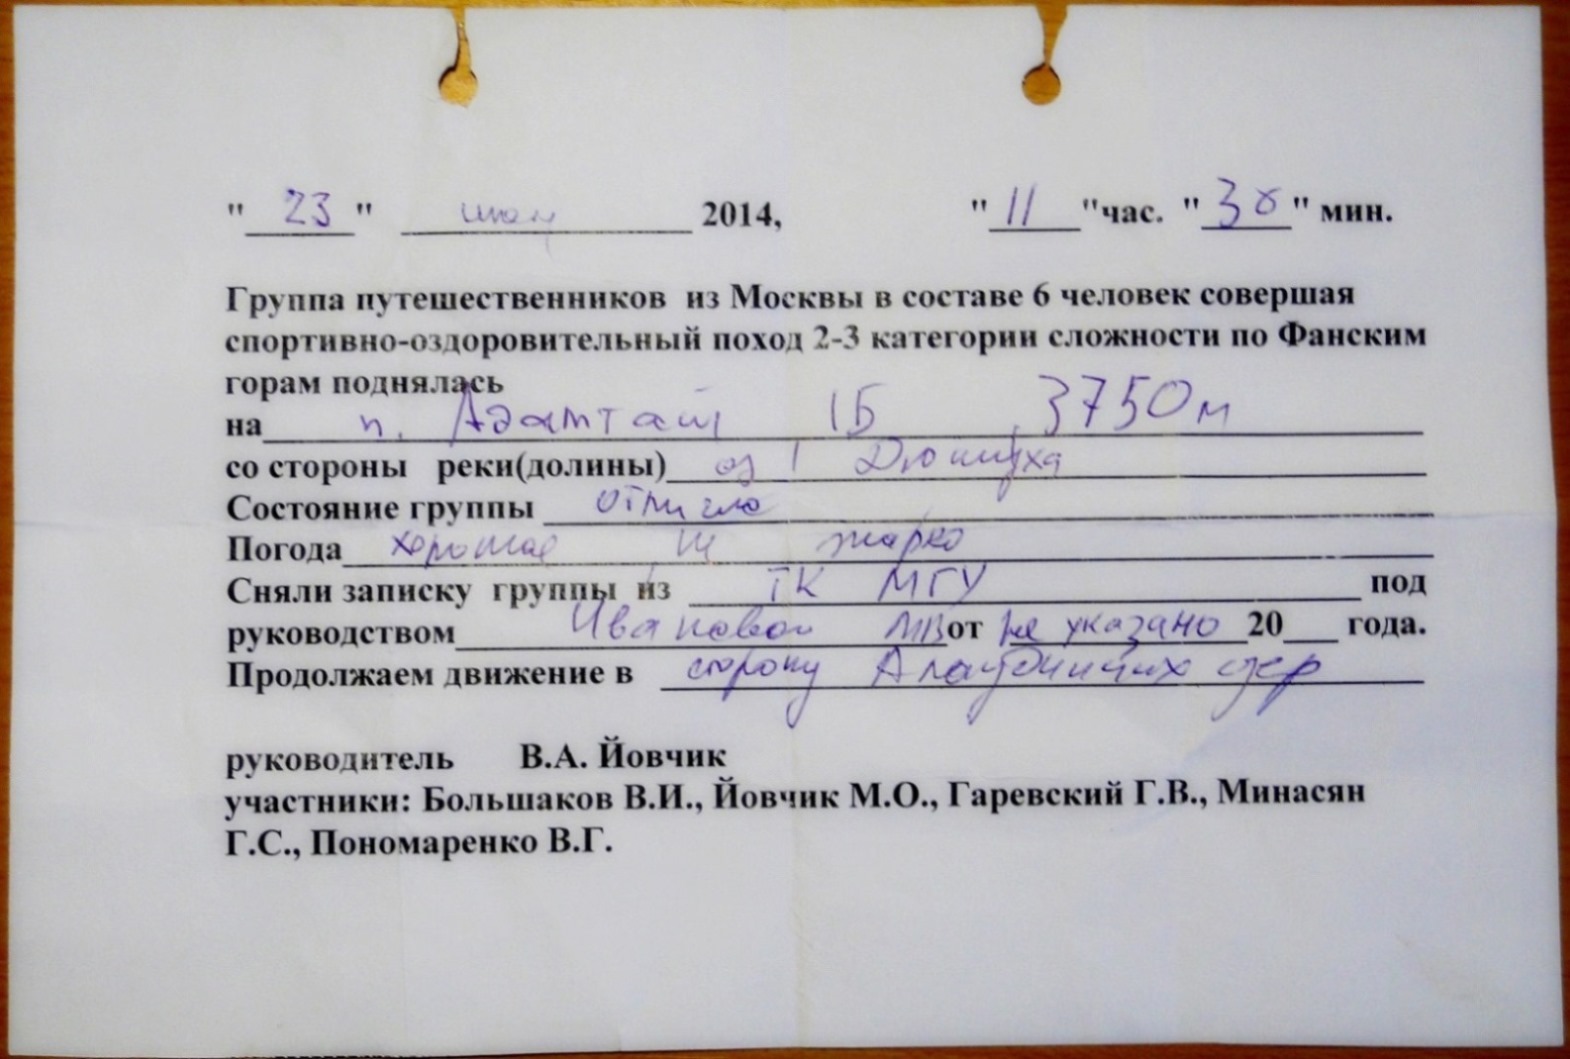 "23" июля 2014, "11" час. "30" мин.
Группа путешественников из Москвы в составе 6 человек совершая
спортивно-оздоровительный поход 2-3 категории сложности по Фанским
горам поднялась
на п. Адамташ 1Б 3750м
со стороны реки(долины) оз Дюшаха
Состояние группы отлично
Погода хорошая жарко
Сняли записку группы из ТК МГУ под
руководством Ивановой МВ от не указано 20 года.
Продолжаем движение в сторону Алаудинских озер
руководитель В.А. Йовчик
участники: Большаков В.И., Йовчик М.О., Гаревский Г.В., Минасян
Г.С., Пономаренко В.Г.